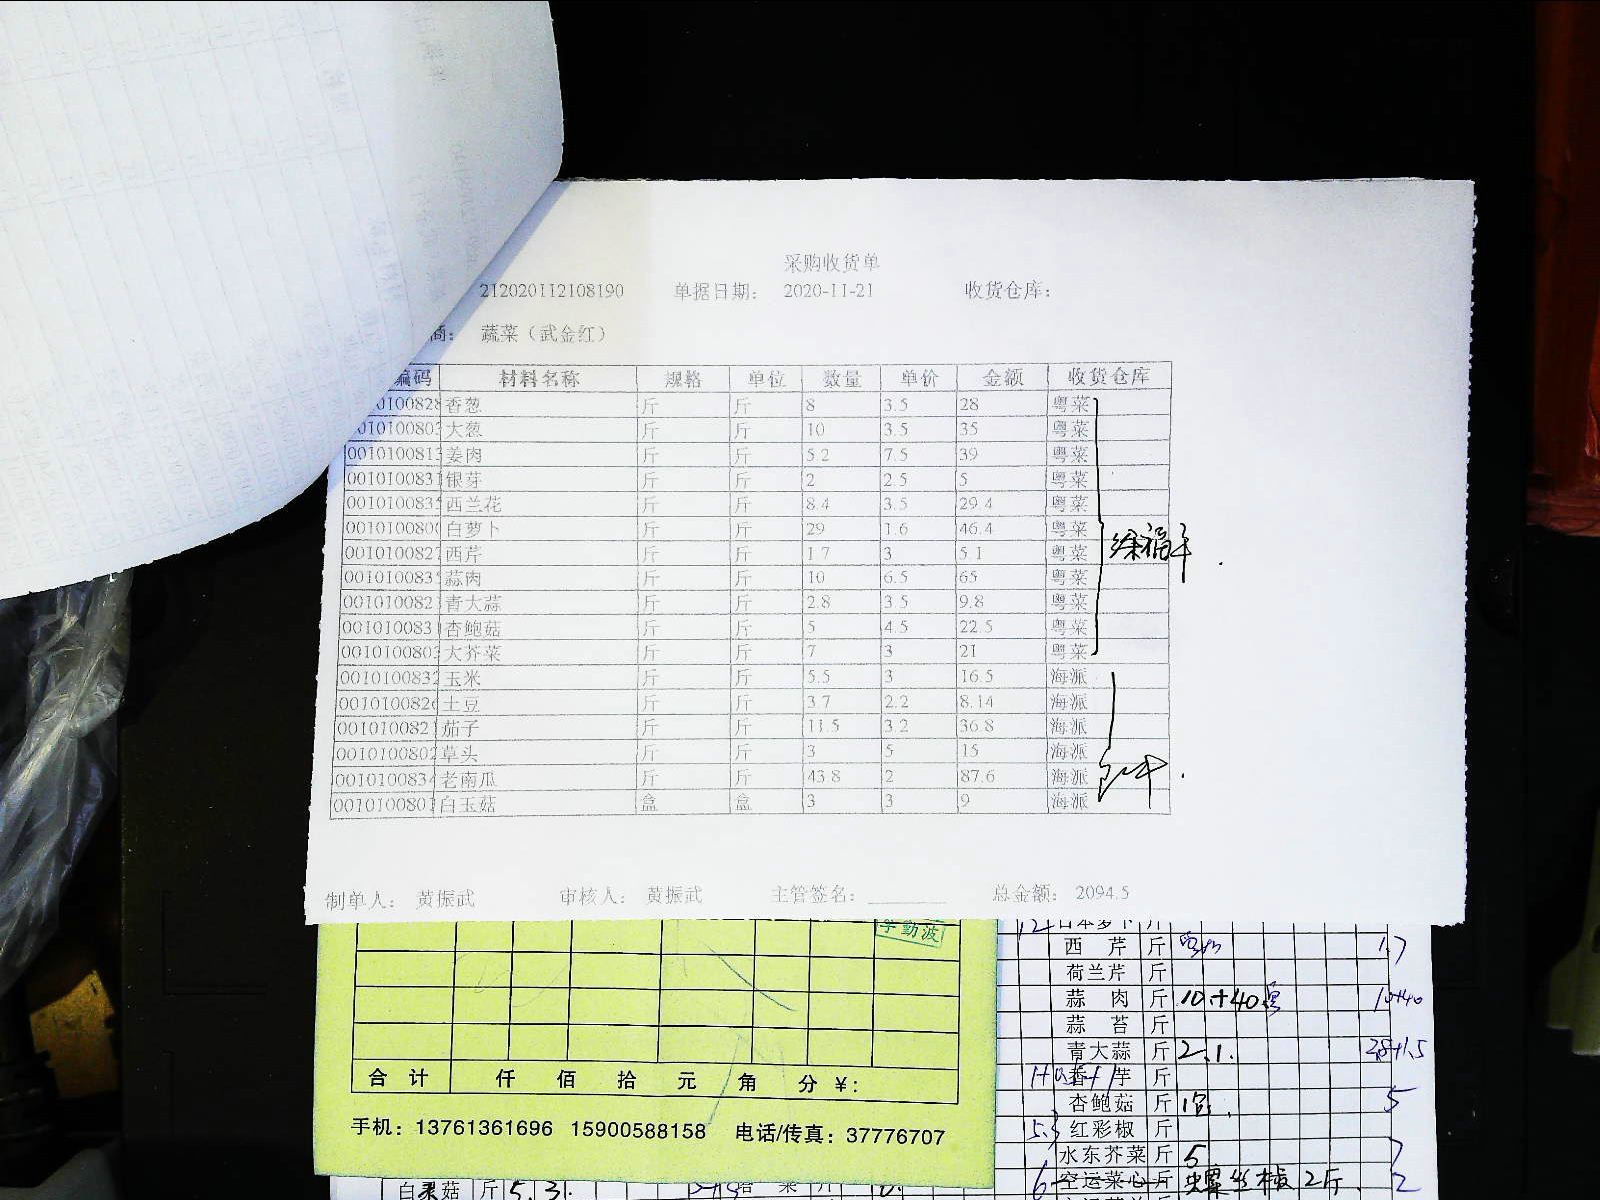 采购收货单
212020112108190 单据日期： 2020-11-21 收货仓库：
商： 蔬菜（武金红）
编码 材料名称 规格 单位 数量 单价 金额 收货仓库
010100828 香葱 斤 斤 8 3.5 28 粤菜
010100803 大葱 斤 斤 10 3.5 35 粤菜
0010100813 姜肉 斤 斤 5.2 7.5 39 粤菜
0010100831 银芽 斤 斤 2 2.5 5 粤菜
0010100835 西兰花 斤 斤 8.4 3.5 29.4 粤菜
0010100800 白萝卜 斤 斤 29 1.6 46.4 粤菜
0010100827 西芹 斤 斤 1.7 3 5.1 粤菜
0010100835 蒜肉 斤 斤 10 6.5 65 粤菜
0010100821 青大蒜 斤 斤 2.8 3.5 9.8 粤菜
0010100831 杏鲍菇 斤 斤 5 4.5 22.5 粤菜
0010100803 大芥菜 斤 斤 7 3 21 粤菜
0010100832 玉米 斤 斤 5.5 3 16.5 海派
0010100826 土豆 斤 斤 3.7 2.2 8.14 海派
0010100821 茄子 斤 斤 11.5 3.2 36.8 海派
0010100802 草头 斤 斤 3 5 15 海派
0010100834 老南瓜 斤 斤 43.8 2 87.6 海派
0010100801 白玉菇 盒 盒 3 3 9 海派
制单人： 黄振武 审核人： 黄振武 主管签名： 总金额： 2094.5
李勤波
合计 仟 佰 拾 元 角 分 ¥:
手机：13761361696 15900588158 电话/传真：37776707
12 日本萝卜 斤
西芹 斤 1.7
荷兰芹 斤
蒜肉 斤 10+40 10+40
蒜苔 斤
青大蒜 斤 2.1. 2.8+1.5
香芋 斤
杏鲍菇 斤 5
5.3 红彩椒 斤
水东芥菜 斤 5 7
6 空运菜心 斤 螺丝椒 2斤 2
白灵菇 斤 5.3